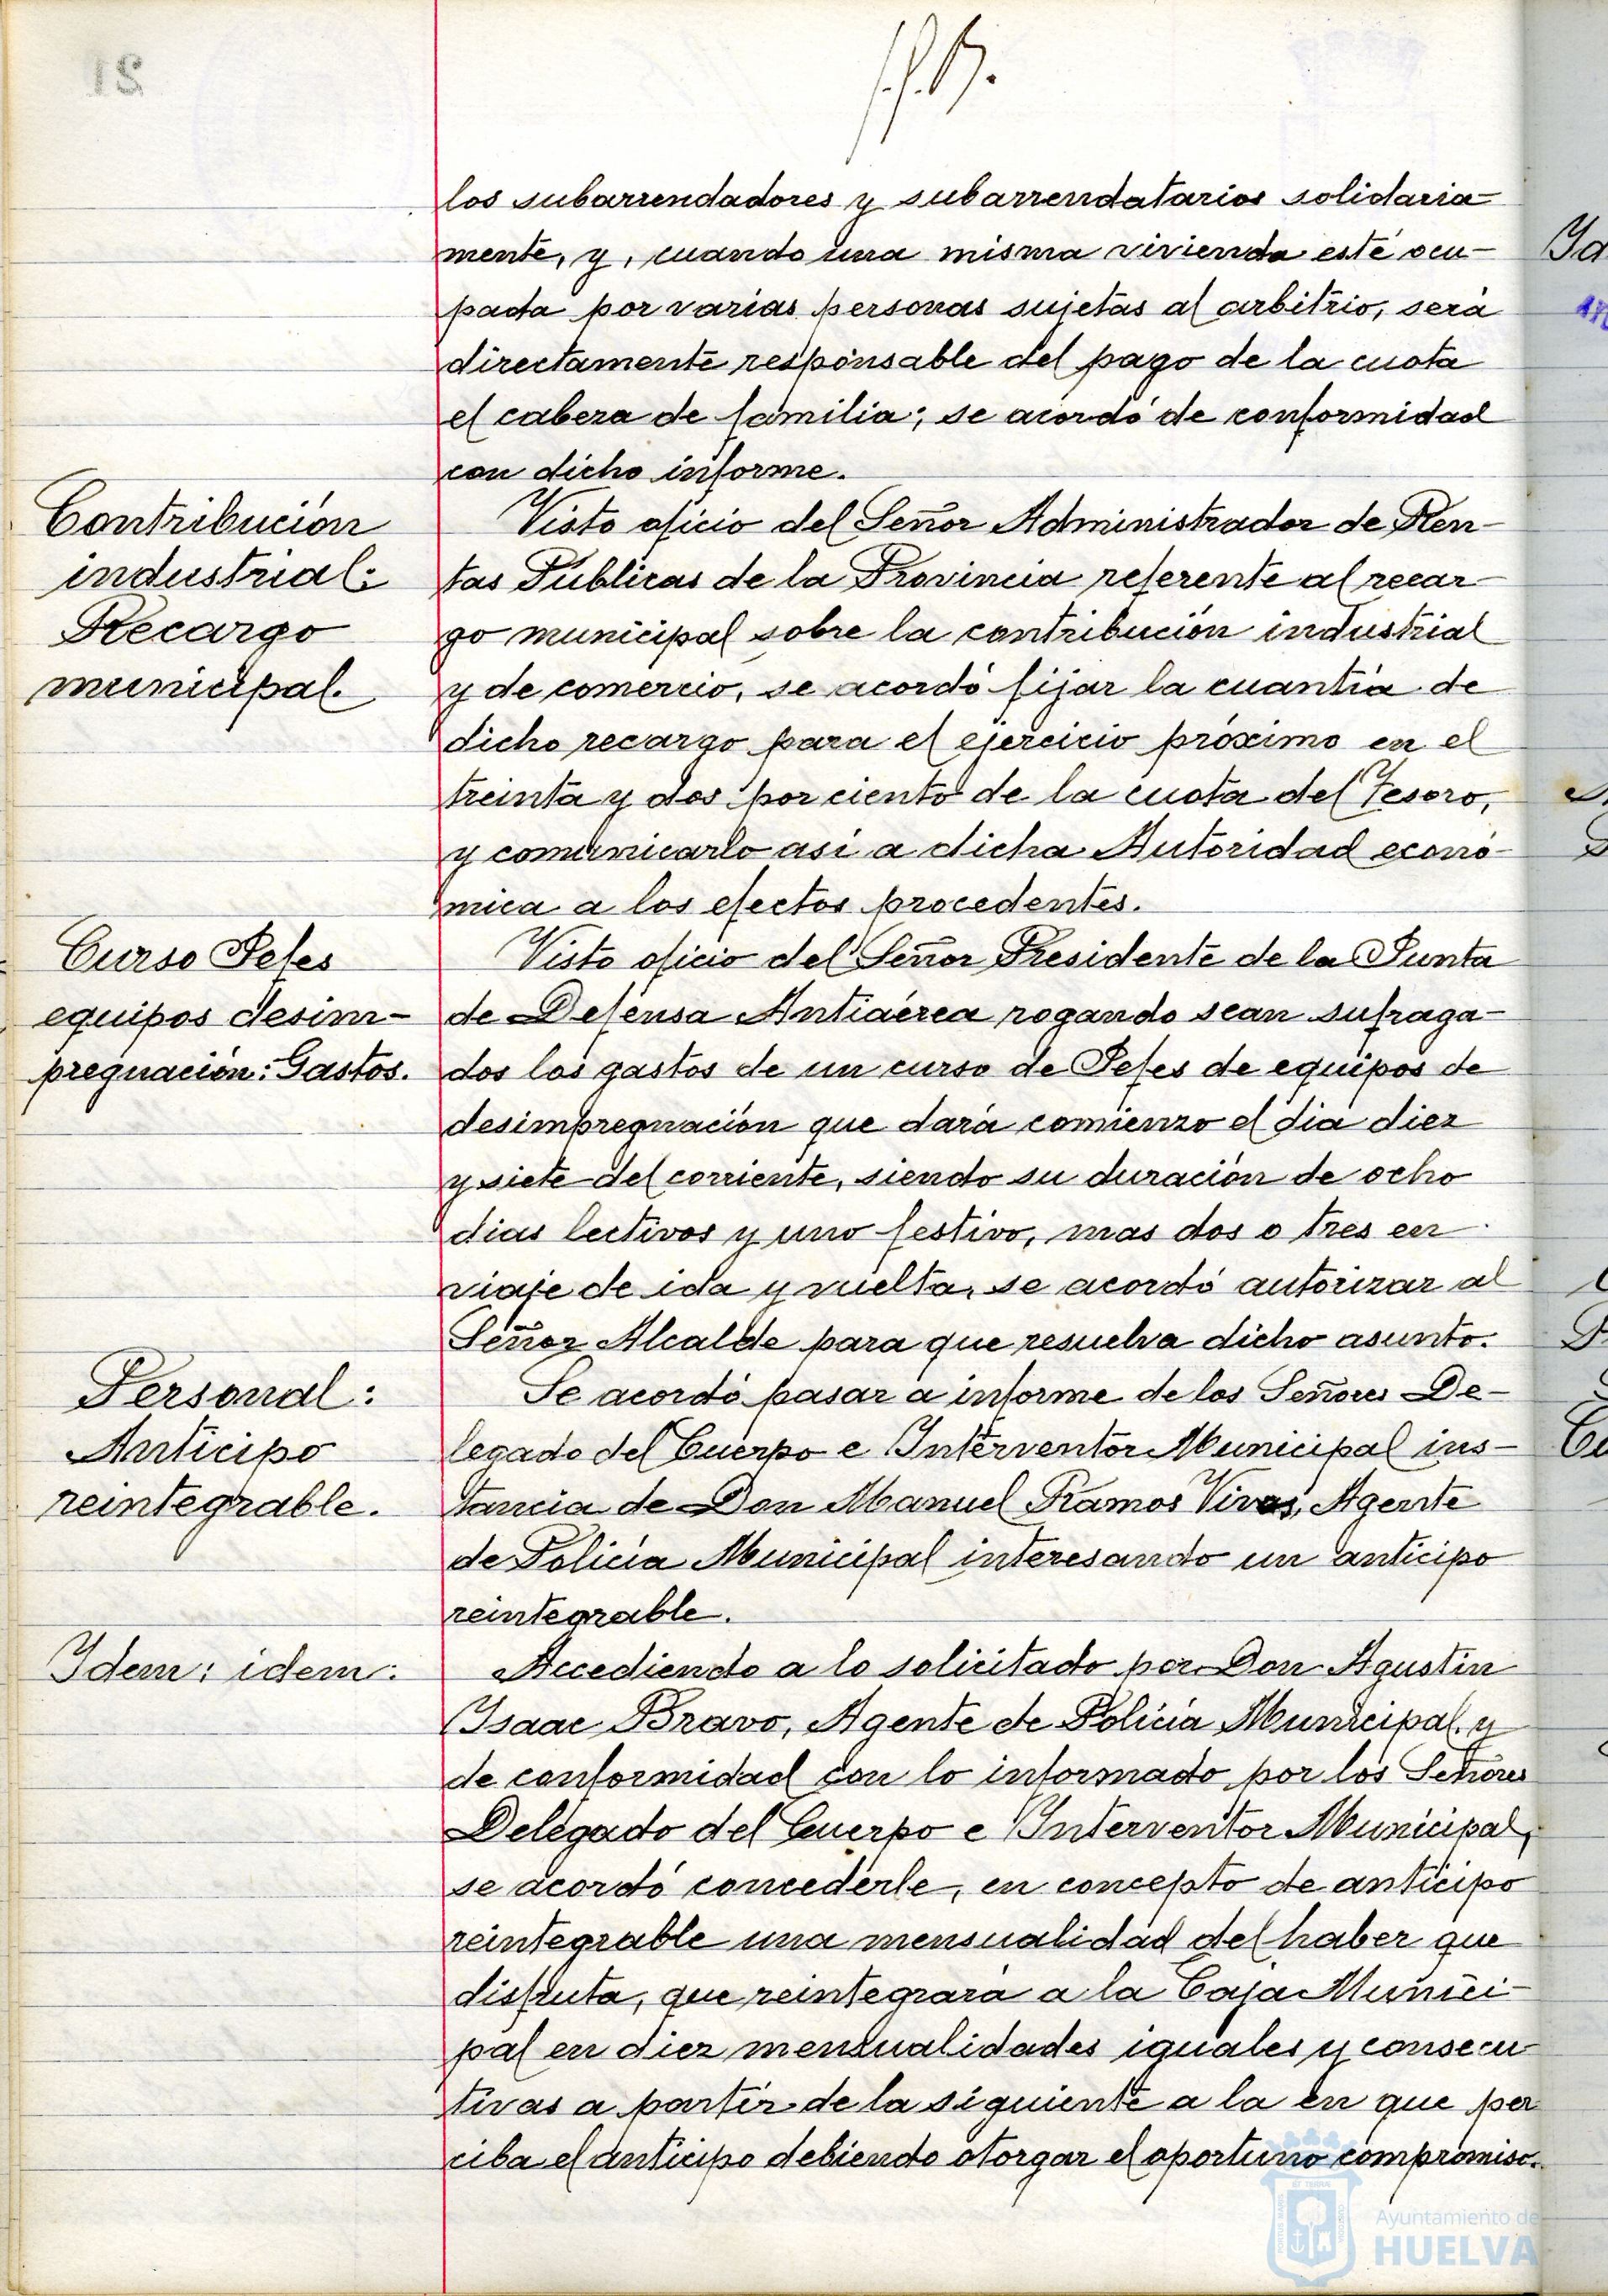 21
los subarrendadores y subarrendatarios solidaria-
mente, y, cuando una misma vivienda esté ocu-
pada por varias personas sujetas al arbitrio, será
directamente responsable del pago de la cuota
el cabeza de familia; se acordó de conformidad
con dicho informe.
Contribución
industrial:
Recargo
municipal.
Visto oficio del Señor Administrador de Ren-
tas Públicas de la Provincia referente al recar-
go municipal sobre la contribución industrial
y de comercio, se acordó fijar la cuantía de
dicho recargo para el ejercicio próximo en el
treinta y dos por ciento de la cuota del Tesoro,
y comunicarlo así a dicha Autoridad econó-
mica a los efectos procedentes.
Curso Jefes
equipos desim-
pregnación: Gastos.
Visto oficio del Señor Presidente de la Junta
de Defensa Antiaérea rogando sean sufraga-
dos los gastos de un curso de Jefes de equipos de
desimpregnación que dará comienzo el día diez
y siete del corriente, siendo su duración de ocho
dias lectivos y uno festivo, mas dos o tres en
viaje de ida y vuelta, se acordó autorizar al
Señor Alcalde para que resuelva dicho asunto.
Personal:
Anticipo
reintegrable.
Se acordó pasar a informe de los Señores De-
legado del Cuerpo e Interventor Municipal ins-
tancia de Don Manuel Ramos Vivas, Agente
de Policía Municipal interesando un anticipo
reintegrable.
Idem: idem:
Accediendo a lo solicitado por Don Agustín
Isaac Bravo, Agente de Policía Municipal y
de conformidad con lo informado por los Señores
Delegado del Cuerpo e Interventor Municipal,
se acordó concederle, en concepto de anticipo
reintegrable una mensualidad del haber que
disfruta, que reintegrará a la Caja Munici-
pal en diez mensualidades iguales y consecu-
tivas a partir de la siguiente a la en que per
ciba el anticipo debiendo otorgar el oportuno compromiso.
Ayuntamiento de
HUELVA